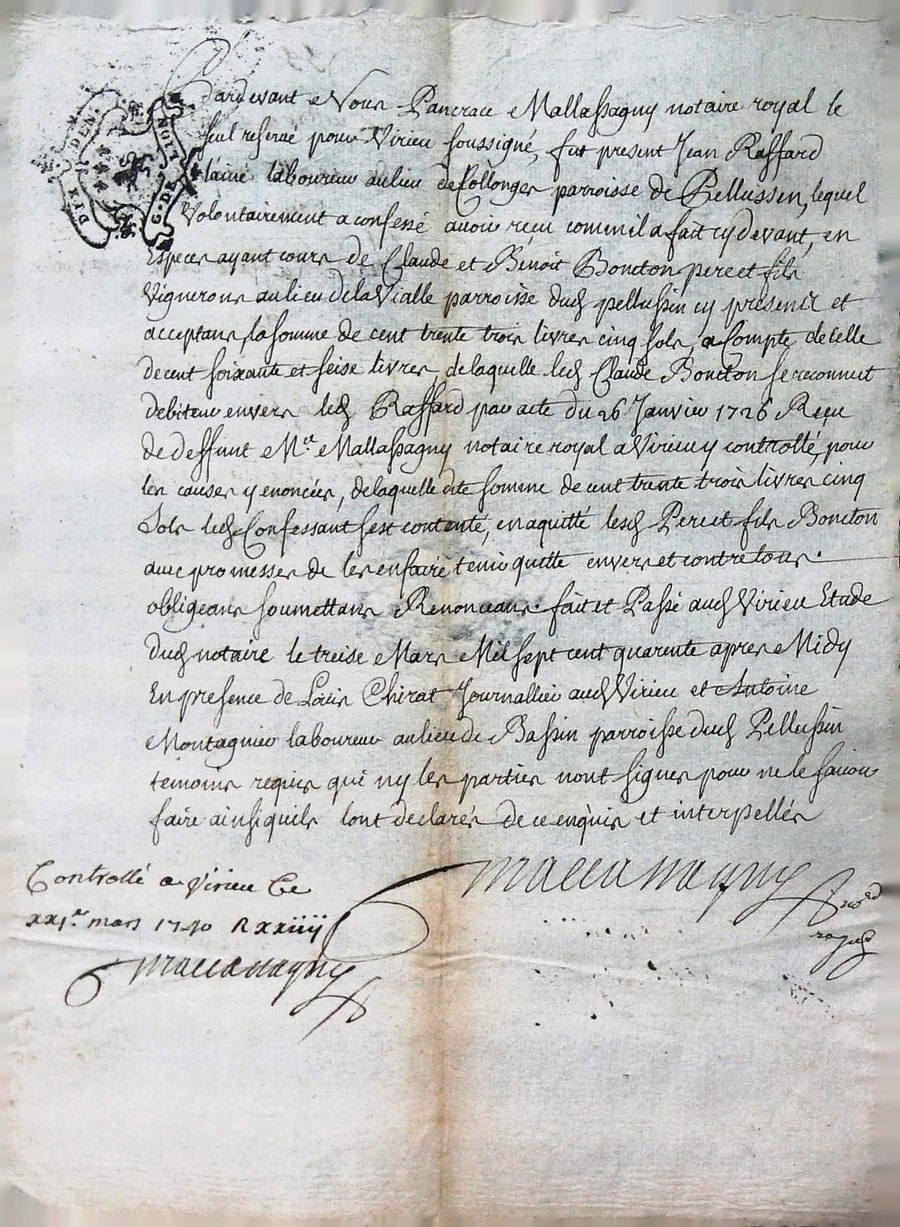 DIX DEN.
G. DE LION
NOIT
Pardevant Nous Pancrace Mallassagny notaire royal le
seul reservé pour Virieu soussigné, fut present Jean Raffard
laine laboureur au lieu de Collonges parroisse de Pellussin, lequel
Volontairement a confessé avoir receu comme il a fait cy devant, en
Especes ayant cours de Claude et Benoit Boncton pere et fils
Vignerons au lieu de la Vialle parroisse dud pellussin cy presents et
acceptans, la somme de cent trente trois livres cinq sols a Compte de celle
de cent soixante et seise livres, de laquelle led Claude Boncton se reconnut
debiteur envers led Raffard par acte du 26 Janvier 1726 Receu
de deffunt Me Mallassagny notaire royal a Virieu y controllé, pour
les causes y enoncées, de laquelle dite somme de cent trente trois livres cinq
sols led Confessant s'est contenté, en a quitté lesd Pere et fils Boncton
avec promesses de les en faire tenir quitte envers et contre tous.
obligeans soumettans Renonceans. fait et Passé aud Virieu Etude
dud notaire le treise Mars Mil sept cent quarente apres Midy
En presence de Louis Chirat Journallier aud Virieu et Antoine
Montagnier laboureur au lieu de Bassin parroisse dud Pellussin
temoins requis qui ny les parties n'ont signes pour ne le scavoir
faire ainsi quils l'ont declarés de ce enquis et interpellés
Mallassagny
royal
Controllé a Virieu Ce
xxi.e mars 1740 R xxiiii s
Mallassagny